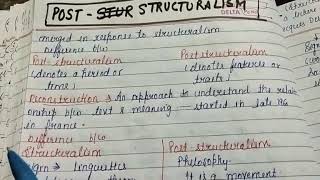 POST - STRUCTURALISM
DELTA
emerged in response to structuralism
Difference b/w
Post-structuralism Poststructuralism
(denotes a period or (denotes features or
time) traits)
Deconstruction → An approach to understand the relati
onship b/w text & meaning — started in late 196
in france.
Difference b/w
Structuralism Post-structuralism
sign → linguistics Philosophy
It is a movement